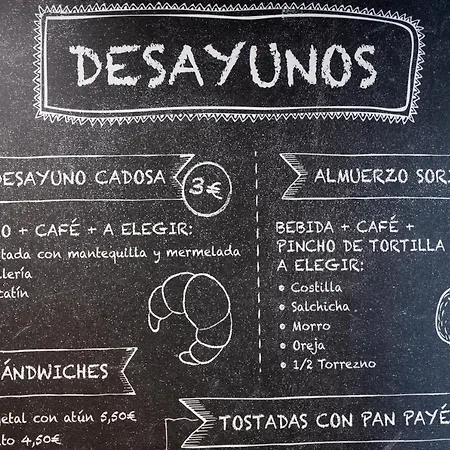 DESAYUNOS
DESAYUNO CADOSA
3€
O + CAFÉ + A ELEGIR:
tada con mantequilla y mermelada
llería
catín
SÁNDWICHES
getal con atún 5,50€
to 4,50€
ALMUERZO SORI
BEBIDA + CAFÉ +
PINCHO DE TORTILLA
A ELEGIR:
• Costilla
• Salchicha
• Morro
• Oreja
• 1/2 Torrezno
TOSTADAS CON PAN PAYÉ